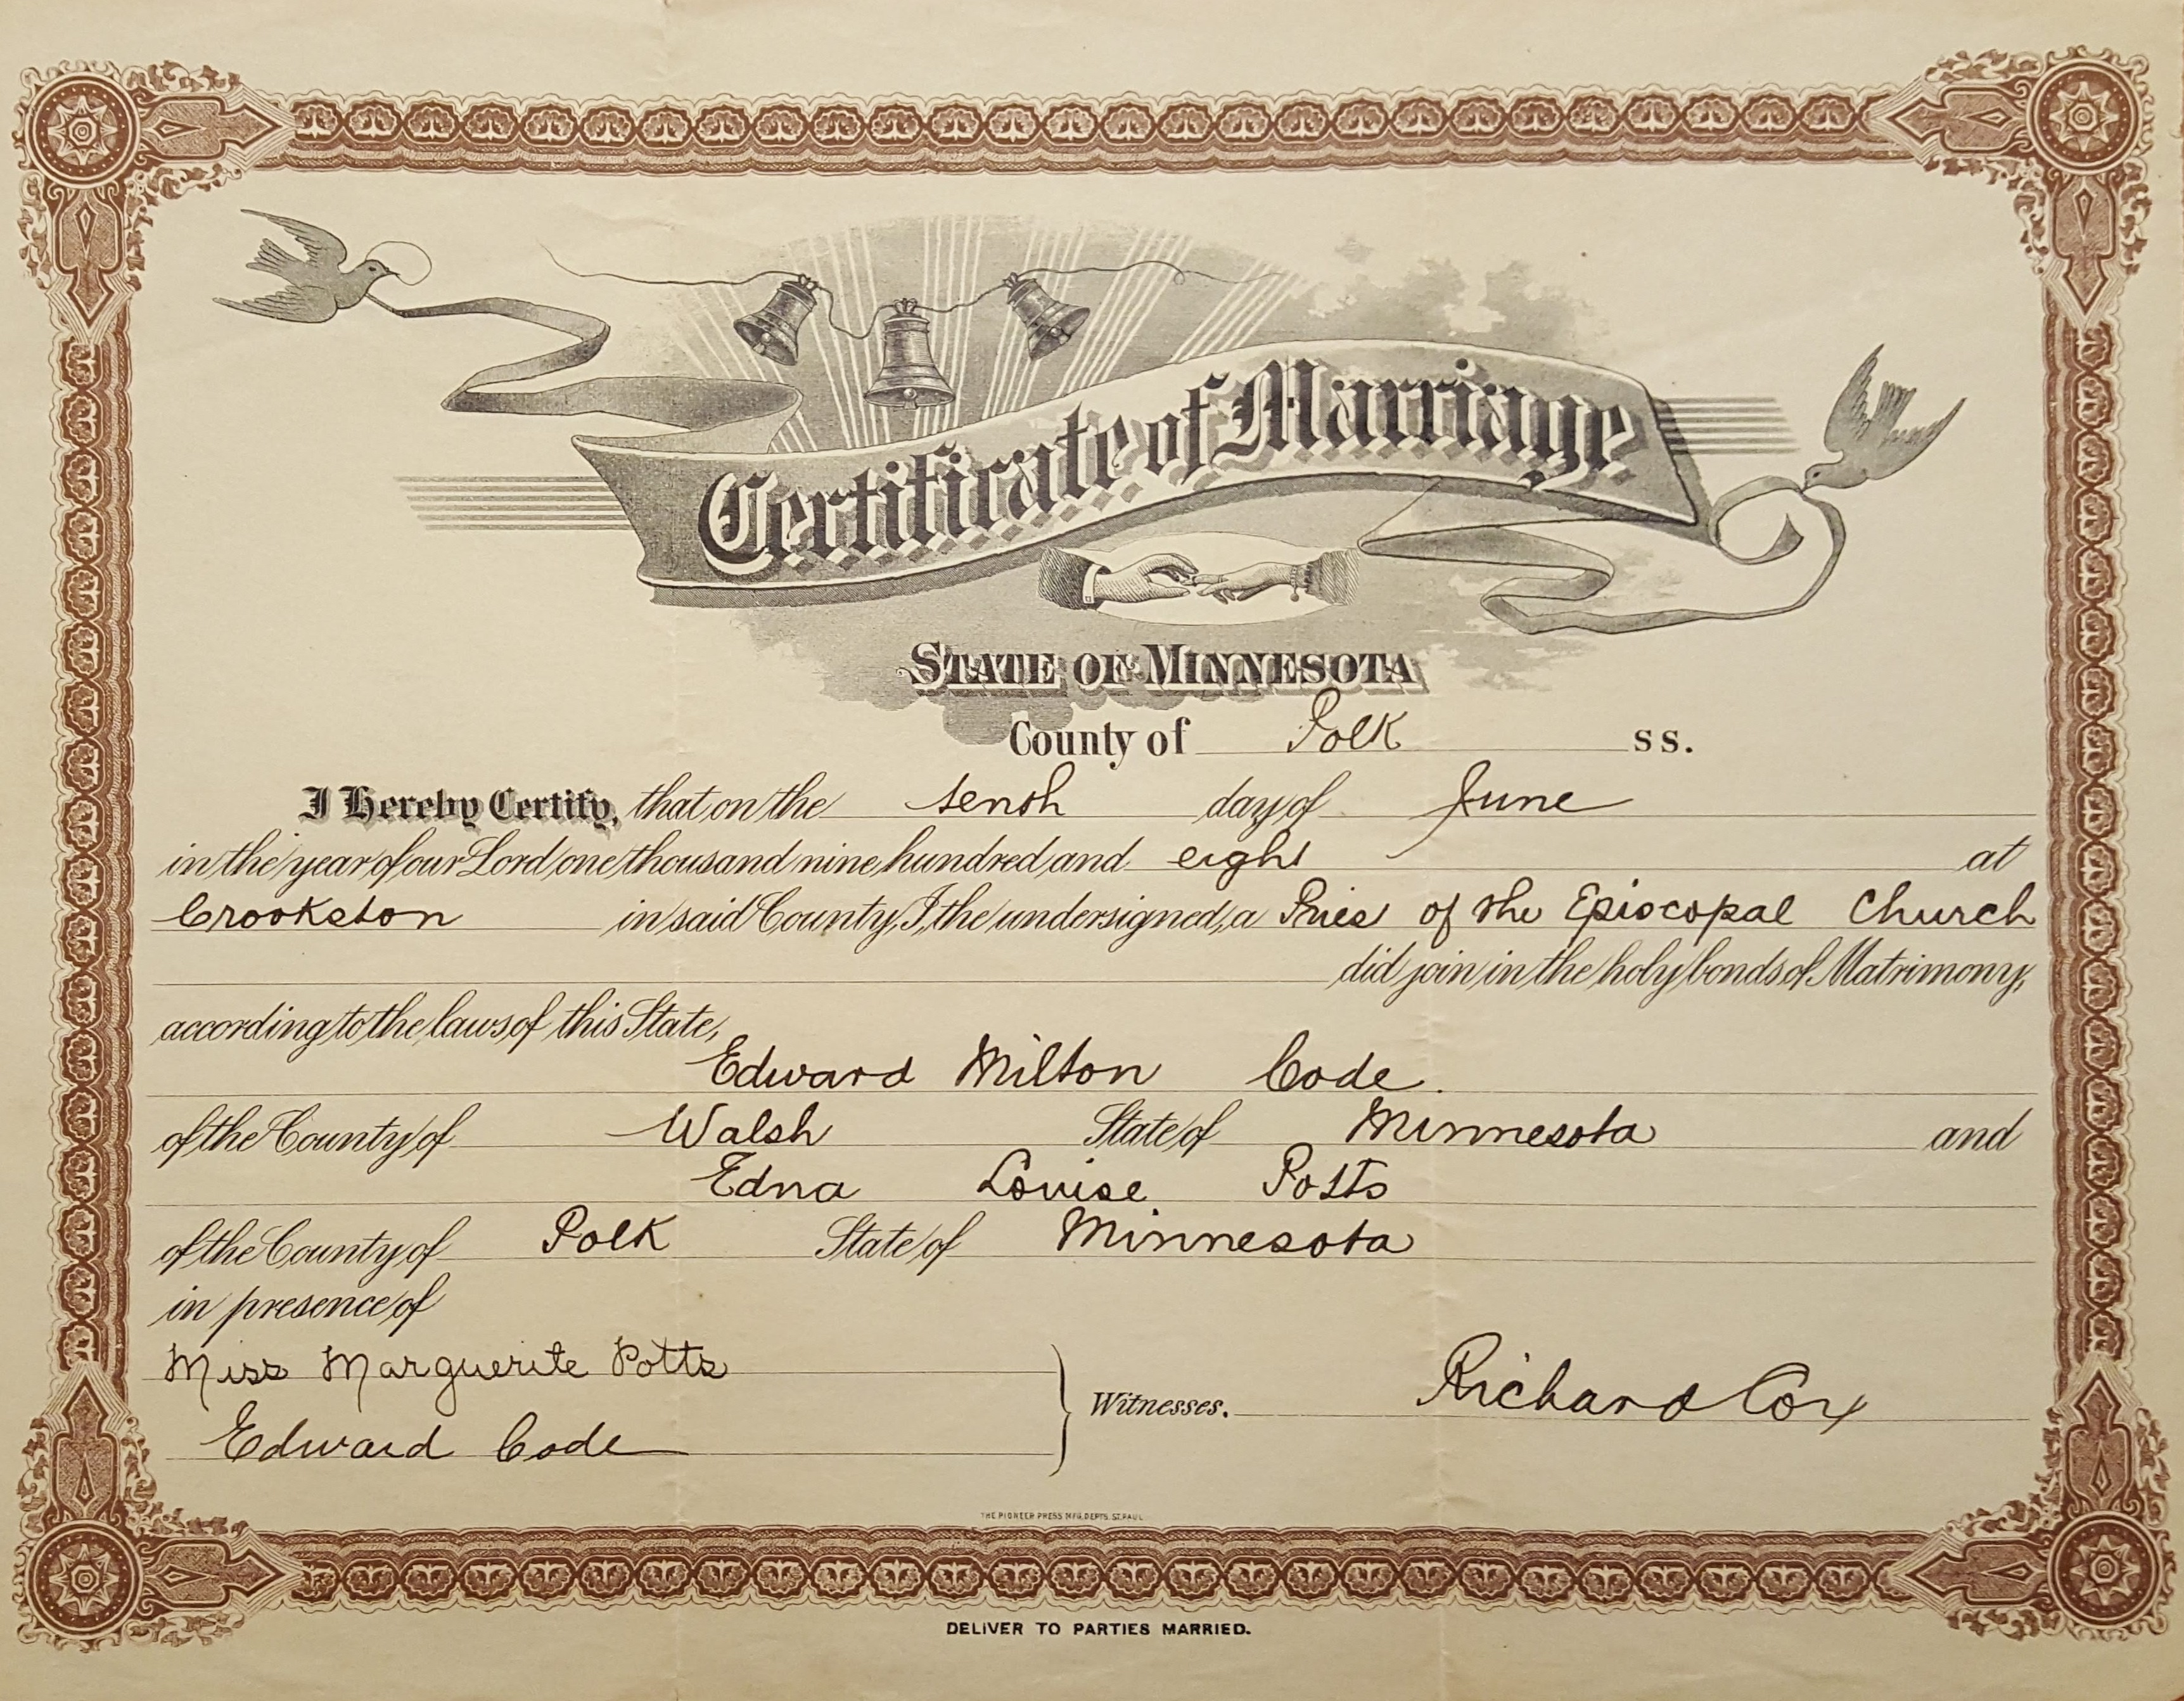 Certificate of Marriage
STATE OF MINNESOTA
County of Polk ss.
I Hereby Certify, that on the tenth day of June
in the year of our Lord one thousand nine hundred and eight at
Crookston in said County, I, the undersigned, a Priest of the Episcopal Church
did join in the holy bonds of Matrimony,
according to the laws of this State,
Edward Milton Code.
of the County of Walsh State of Minnesota and
Edna Louise Potts
of the County of Polk State of Minnesota
in presence of
Miss Marguerite Potts
Edward Code
Witnesses. Richard Cox
THE PIONEER PRESS MFG. DEPTS. ST. PAUL
DELIVER TO PARTIES MARRIED.